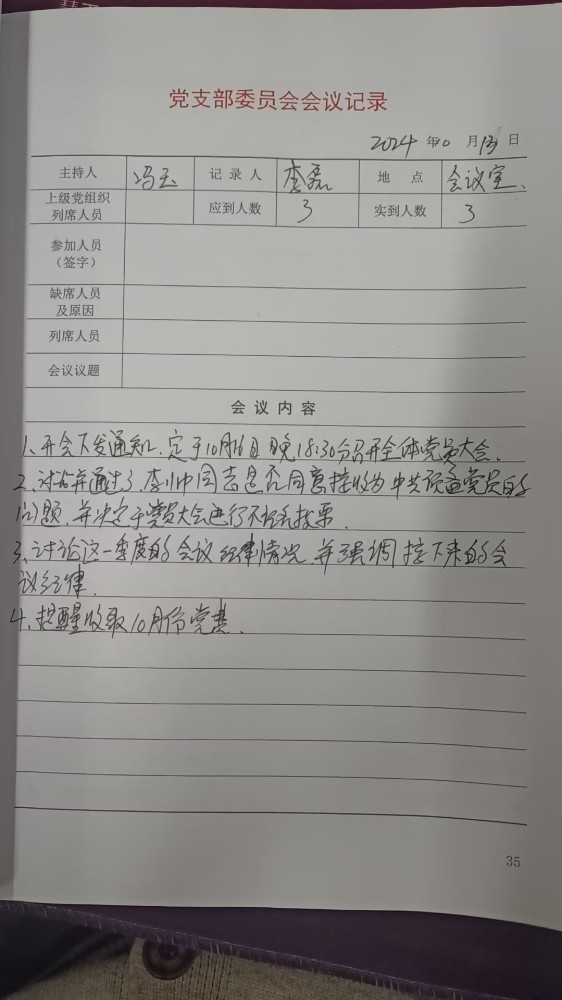 党支部委员会会议记录
2024 年 10 月 13 日
主持人 冯玉 记录人 李磊 地点 会议室、
上级党组织列席人员 应到人数 3 实到人数 3
参加人员（签字）
缺席人员及原因
列席人员
会议议题
会议内容
1、开会下发通知，定于10月16日晚18:30分召开全体党员大会、
2、讨论并通过了李帅同志是否同意接收为中共预备党员的
问题，并决定于党员大会进行不记名投票、
3、讨论这一季度的会议纪律情况，并强调接下来的会
议纪律、
4、提醒收取10月份党费、
35